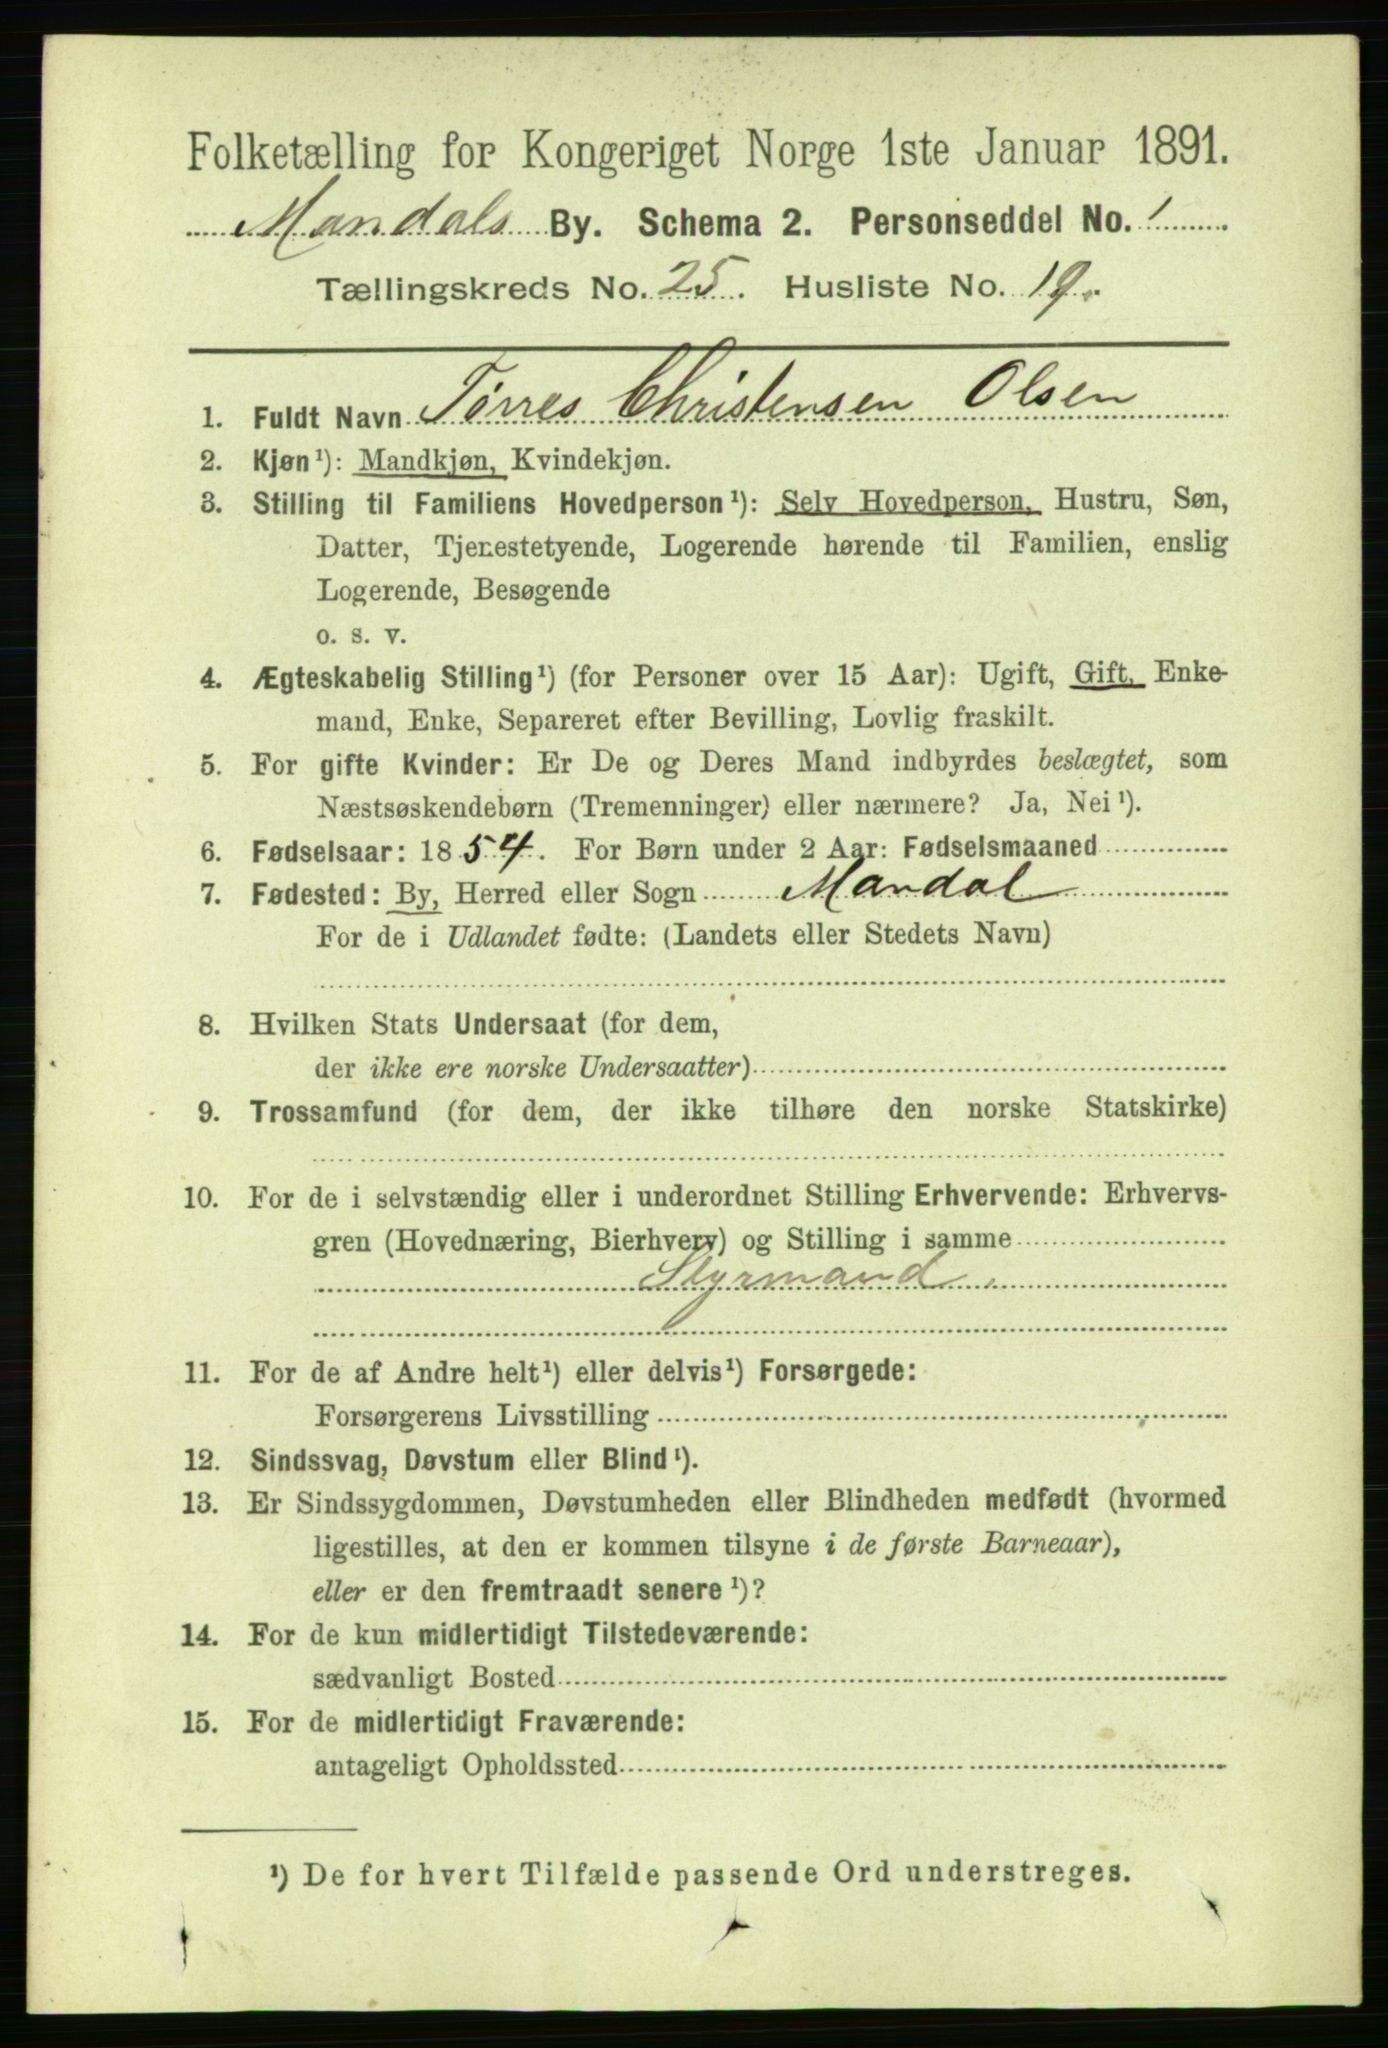 Folketælling for Kongeriget Norge 1ste Januar 1891.
Mandals By. Schema 2. Personseddel No. 1
Tællingskreds No. 25. Husliste No. 19.
1. Fuldt Navn Tørres Christensen Olsen
2. Kjøn¹): Mandkjøn, Kvindekjøn.
3. Stilling til Familiens Hovedperson¹): Selv Hovedperson, Hustru, Søn,
Datter, Tjenestetyende, Logerende hørende til Familien, enslig
Logerende, Besøgende
o. s. v.
4. Ægteskabelig Stilling¹) (for Personer over 15 Aar): Ugift, Gift, Enke-
mand, Enke, Separeret efter Bevilling, Lovlig fraskilt.
5. For gifte Kvinder: Er De og Deres Mand indbyrdes beslægtet, som
Næstsøskendebørn (Tremenninger) eller nærmere? Ja, Nei¹).
6. Fødselsaar: 1854. For Børn under 2 Aar: Fødselsmaaned
7. Fødested: By, Herred eller Sogn Mandal
For de i Udlandet fødte: (Landets eller Stedets Navn)
8. Hvilken Stats Undersaat (for dem,
der ikke ere norske Undersaatter)
9. Trossamfund (for dem, der ikke tilhøre den norske Statskirke)
10. For de i selvstændig eller i underordnet Stilling Erhvervende: Erhvervs-
gren (Hovednæring, Bierhverv) og Stilling i samme
Styrmand.
11. For de af Andre helt¹) eller delvis¹) Forsørgede:
Forsørgerens Livsstilling
12. Sindssvag, Døvstum eller Blind¹).
13. Er Sindssygdommen, Døvstumheden eller Blindheden medfødt (hvormed
ligestilles, at den er kommen tilsyne i de første Barneaar),
eller er den fremtraadt senere¹)?
14. For de kun midlertidigt Tilstedeværende:
sædvanligt Bosted
15. For de midlertidigt Fraværende:
antageligt Opholdssted
¹) De for hvert Tilfælde passende Ord understreges.